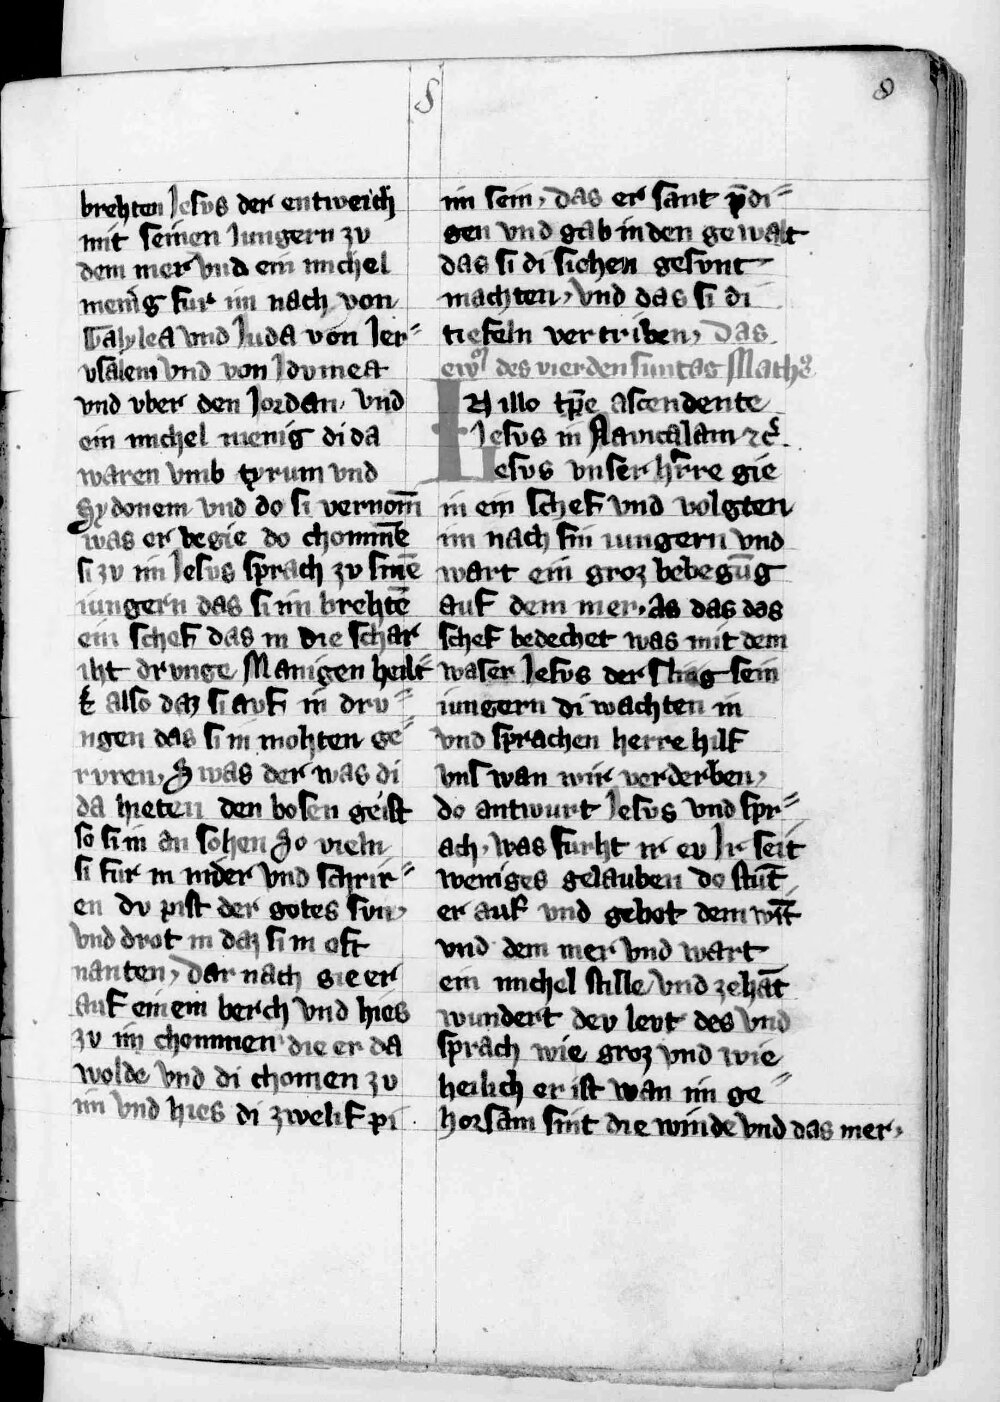 8
8
brehten Jesus der entweich
mit seinen Jungern zv
dem mer vnd ein michel
menig fur im nach von
Galylea vnd Juda von Jer⸗
vsalem vnd von Jdvmea
vnd vber den Jordan, vnd
ein michel menig di da
waren vmb tyrum vnd
Sydonem vnd do si vernom̄
was er begie do chomm̄e
si zv im Jesvs sprach zv sinē
iungern das si im brehtē
ein schef das in die schar
iht drvnge Manigen heilt⸗
er also daz si auf in drv⸗
ngen das si in mohten ge⸗
rvren, Swas der was di
da hieten den bosen geist
so si in an sohen So vieln
si fur in nider vnd schrir⸗
en dv pist der gotes svn,
vnd drot in daz si in oft
nanten, Dar nach gie er
auf einem berch vnd hies
zv im chommen die er da
wolde vnd di chomen zv
im vnd hies di zwelif pi
im sein, Das er sant p̄di⸗
gen vnd gab in den gewalt
das si di sichen gesvnt
machten, vnd das si di
tiefeln vertriben, Das
ew͛ des vierden suntas Math͛
IN illo tp̄e ascendente
Jesvs in Nauicalam ⁊c͛.
Jesvs vnser hr̄re gie
in ein schef vnd volgten
im nach sin iungern vnd
wart ein groz bebegūg
auf dem mer, as das das
schef bedechet was mit dem
waser Jesvs der slaig sein
iungern di wachten in
vnd sprachen herre hilf
vns wan wir verderben,
do antwurt Jesvs vnd spr⸗
ach, was furht ir ev Ir seit
weniges gelauben do stūt
er auf vnd gebot dem wīt
vnd dem mer vnd wart
ein michel stille vnd zehāt
wundert dev levt des vnd
sprach wie groz vnd wie
heilich er ist wan im ge⸗
horsam sint die winde vnd das mer,